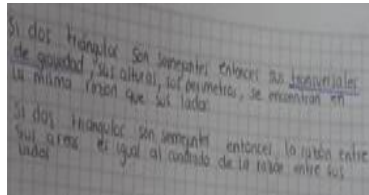 Si dos triángulos son semejantes entonces sus transversales
de gravedad, sus alturas, sus perímetros, se encuentran en
la misma razón que sus lados
Si dos triángulos son semejantes entonces la razón entre
sus áreas es igual al cuadrado de la razón entre sus
lados